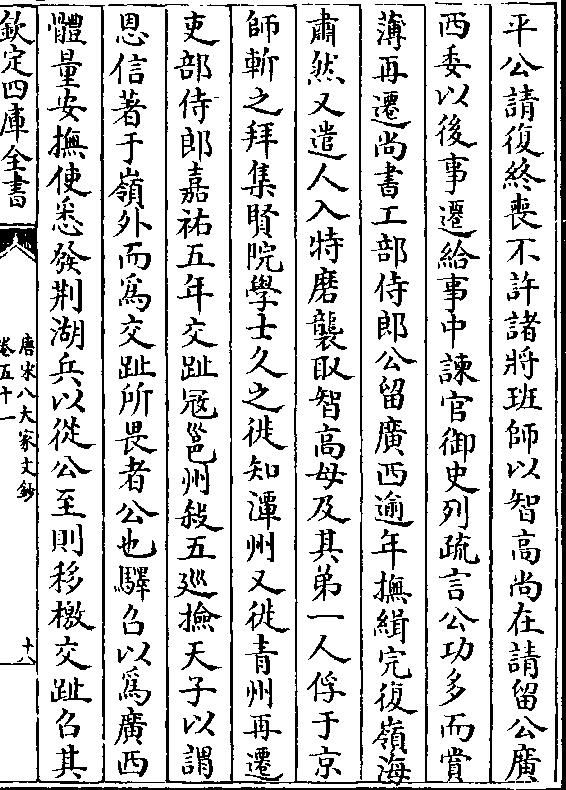 平公請復終喪不許諸將班師以智高尚在請留公廣
西委以後事遷給事中諫官御史列疏言公功多而賞
薄再遷尚書工部侍郎公留廣西逾年撫緝完復嶺海
肅然又遣人入特磨襲取智高母及其弟一人俘于京
師斬之拜集賢院學士久之徙知潭州又徙青州再遷
吏部侍郎嘉祐五年交趾冦邕州殺五廵撿天子以謂
恩信著于嶺外而爲交趾所畏者公也驛召以爲廣西
體量安撫使悉發荆湖兵以從公至則移檄交趾召其
欽定四庫全書
唐宋八大家文鈔
卷五十一
十八